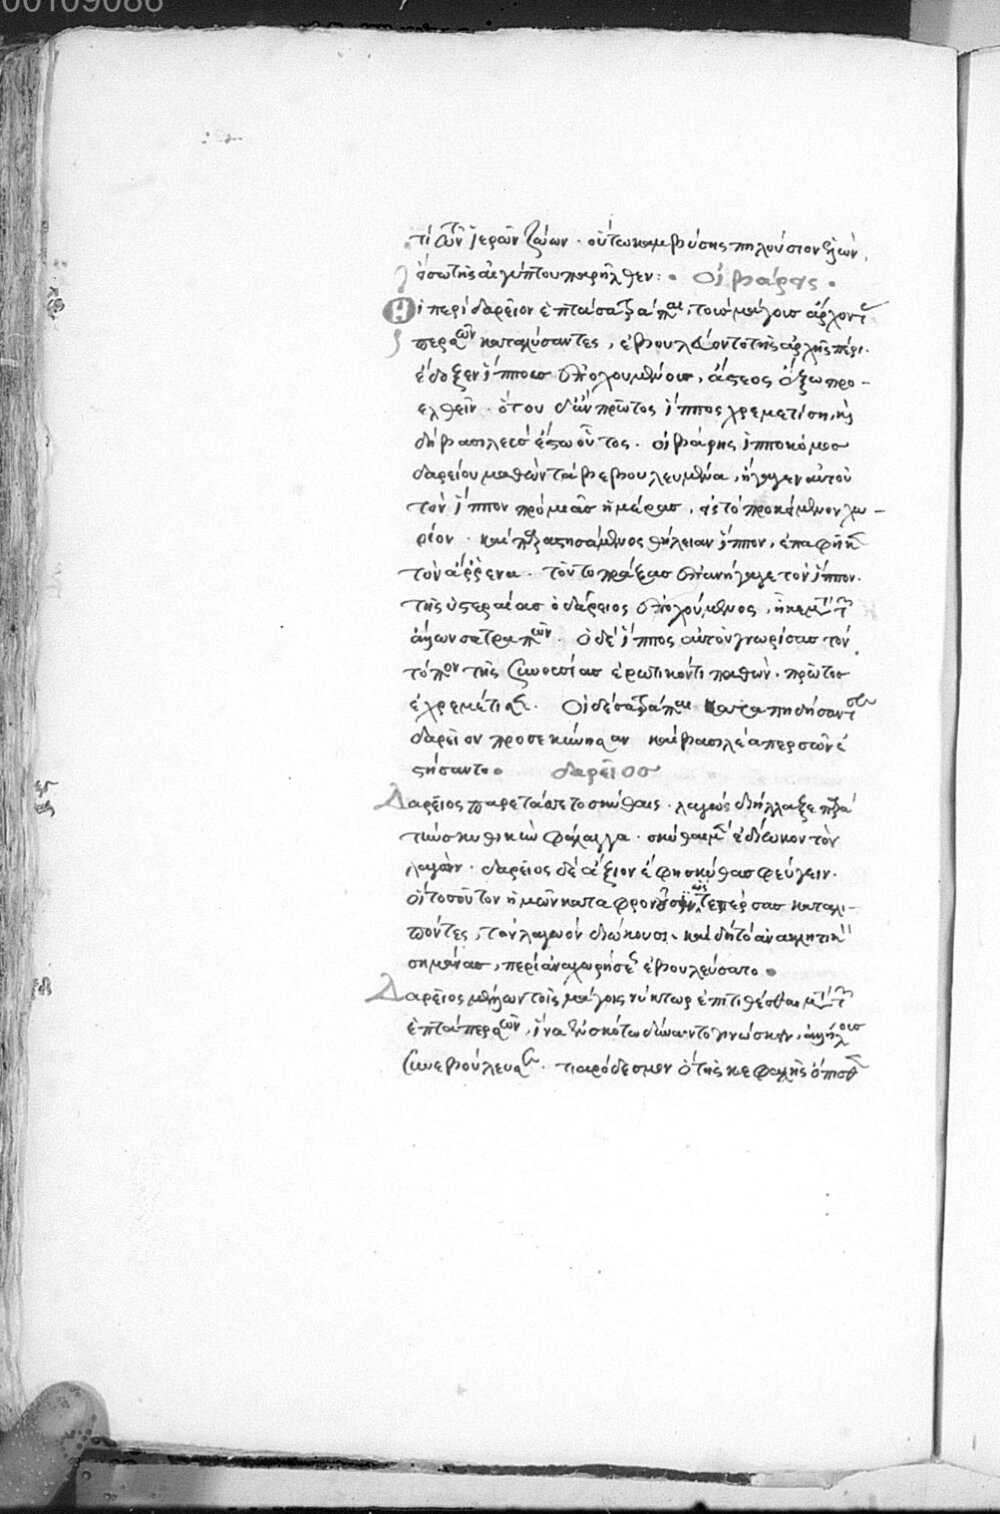 00109086
τι τῶν ἱερῶν ζώων. οὕτω καμβύσης πηλούσιον ἑλὼν,
εἴσω τῆς αἰγύπτου παρῆλθεν: Οἰβάρης.
Οἱ περὶ δαρεῖον ἑπτὰ σατράπαι, τοὺς μάγους ἄρχοντας
περσῶν καταλύσαντες, ἐβουλεύοντο τῆς ἀρχῆς πέρι.
ἔδοξεν ἵπποις ἐποχουμένους, ἄστεος ἔξω προ-
ελθεῖν. ὅτου δ' ἂν πρῶτος ἵππος χρεμετίσῃ,
δὴ βασιλεὺς ἔστω οὗτος. οἰβάρης ἱπποκόμος
δαρείου μαθὼν τὰ βεβουλευμένα, ἤγαγεν αὐτοῦ
τὸν ἵππον πρὸ μιᾶς ἡμέρας, εἰς τὸ προκείμενον χω-
ρίον. καὶ παραστησάμενος θήλειαν ἵππον, ἐπαφῆκε
τὸν ἄρρενα. τοῦτο πράξας ἐπανήγαγε τὸν ἵππον.
τῆς ὑστεραίας ὁ δαρεῖος ἐποχούμενος, ἧκε μετὰ τῶν
ἄλλων σατραπῶν. ὁ δὲ ἵππος αὐτοῦ γνωρίσας τὸν
τόπον τῆς συνουσίας ἐρωτικόν τι παθὼν, πρῶτος
ἐχρεμέτισε. Οἱ δὲ σατράπαι καταπηδήσαντες
δαρεῖον προσεκύνησαν καὶ βασιλέα περσῶν ἐ
στήσαντο. δαρεῖος
Δαρεῖος παρετάττετο σκύθαις. λαγωὸς διήλλαξε παρὰ
τὴν σκυθικὴν φάλαγγα. σκύθαι μὲν ἐδίωκον τὸν
λαγὼν. δαρεῖος δὲ ἄξιον ἔφη σκύθας φεύγειν.
οἳ τοσοῦτον ἡμῶν καταφρονοῦσιν, ὥστε πέρσας καταλι-
πόντες, τὸν λαγωὸν διώκουσι. καὶ δὴ τὸ ἀνακλητικὸν
σημήνας, περὶ ἀναχωρήσεως ἐβουλεύσατο.
Δαρεῖος μέλλων τοῖς μάγοις νύκτωρ ἐπιτίθεσθαι μετὰ τῶν
ἑπτὰ περσῶν, ἵνα ἐν σκότῳ δύναιντο γινώσκειν ἀλλήλους
συνεβούλευσε. τιαρόδεσμον ὃ τῆς κεφαλῆς ὄπισθεν